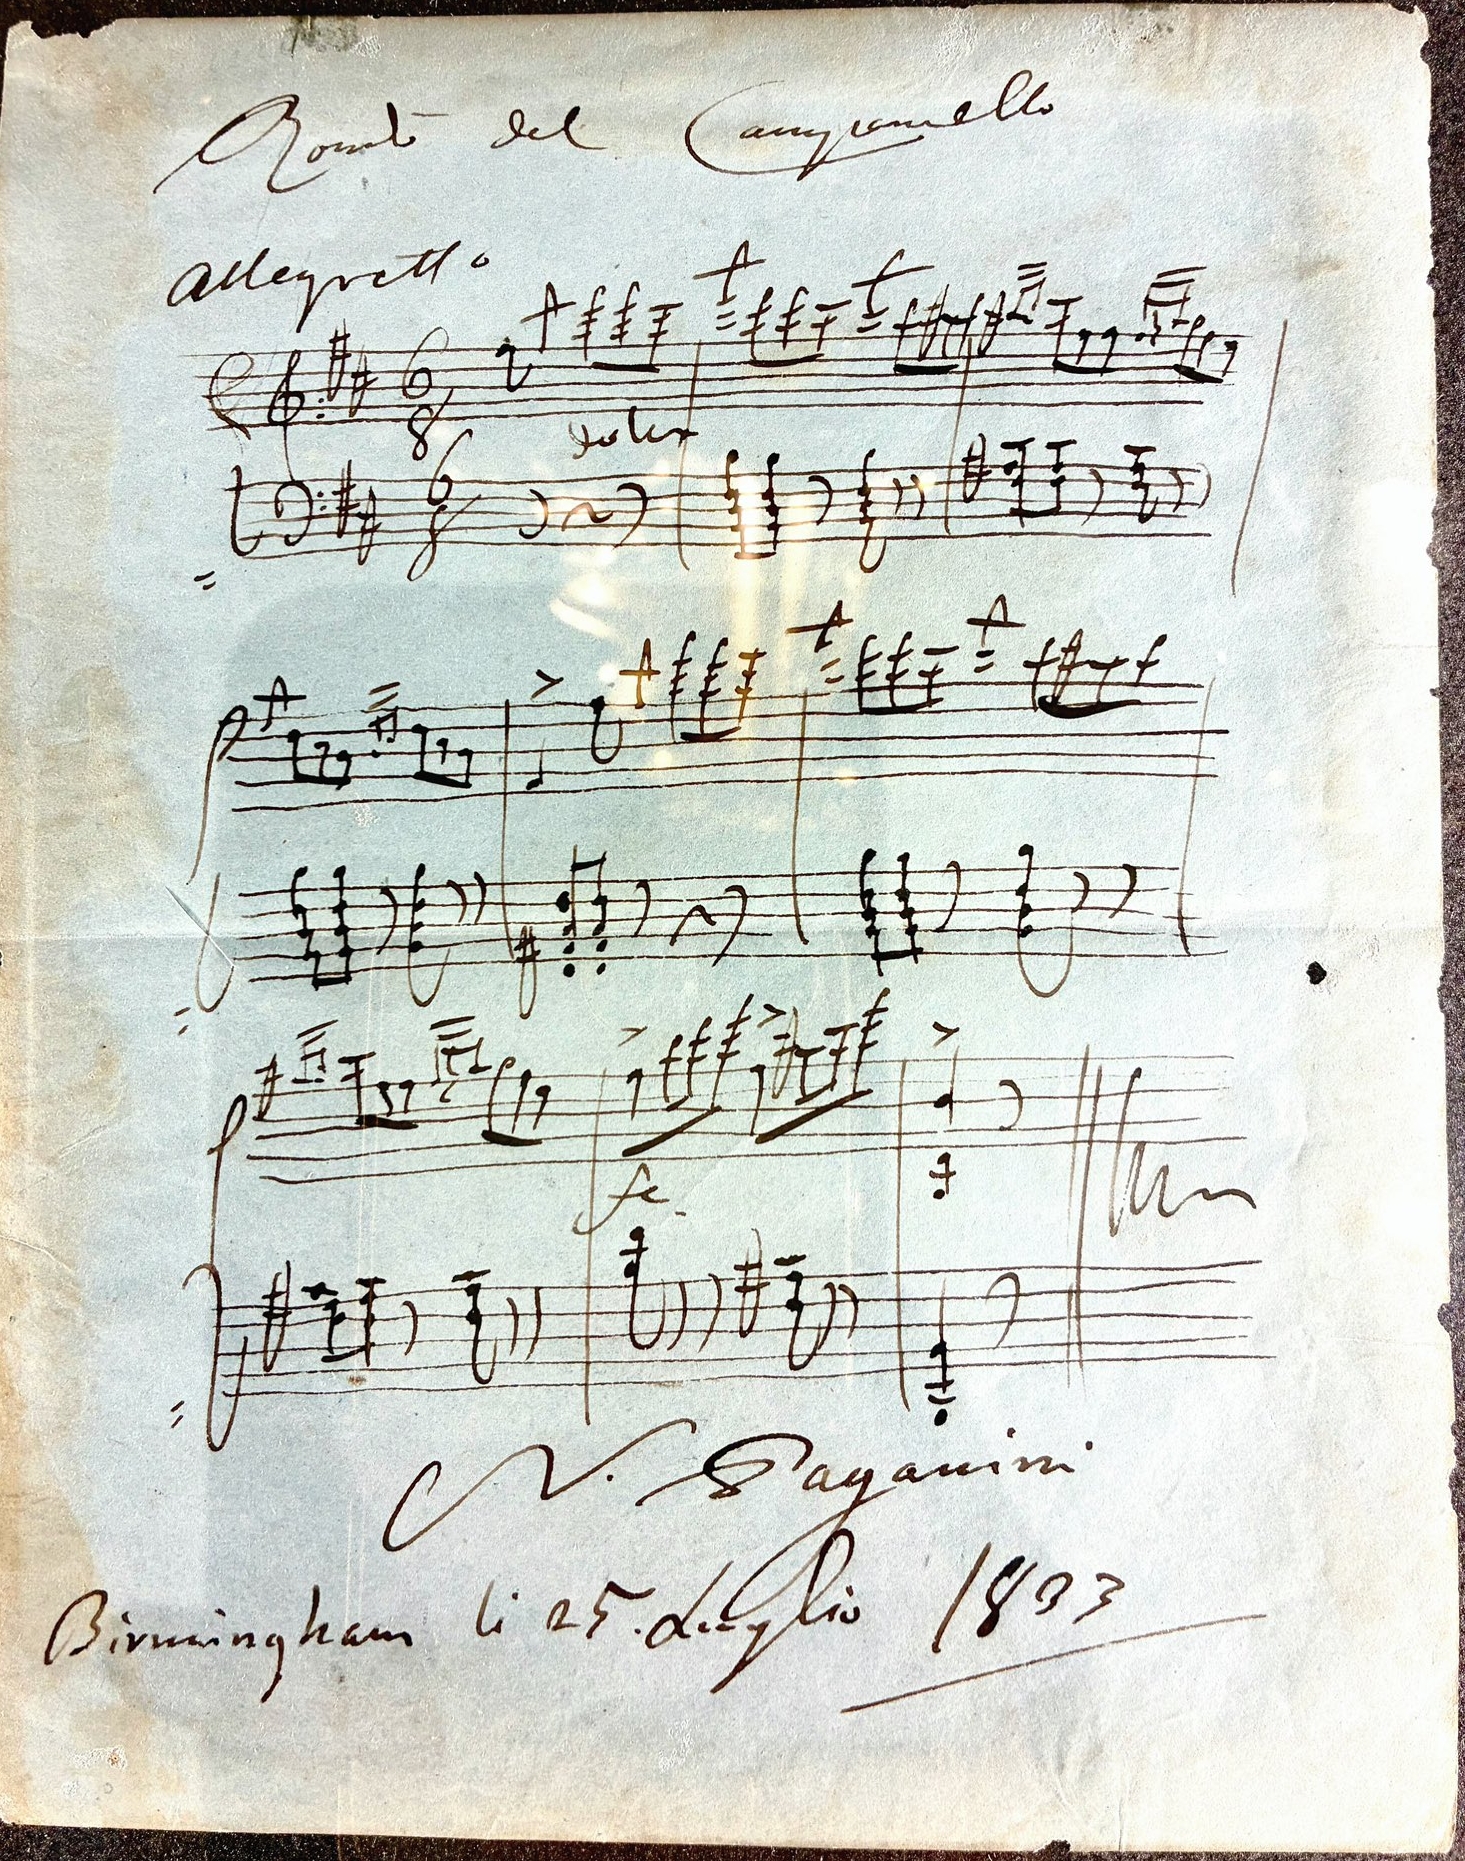 Rondò del Campanello
Allegretto
6
8
dolce
6
8
fe
N. Paganini
Birmingham li 25. Luglio 1833